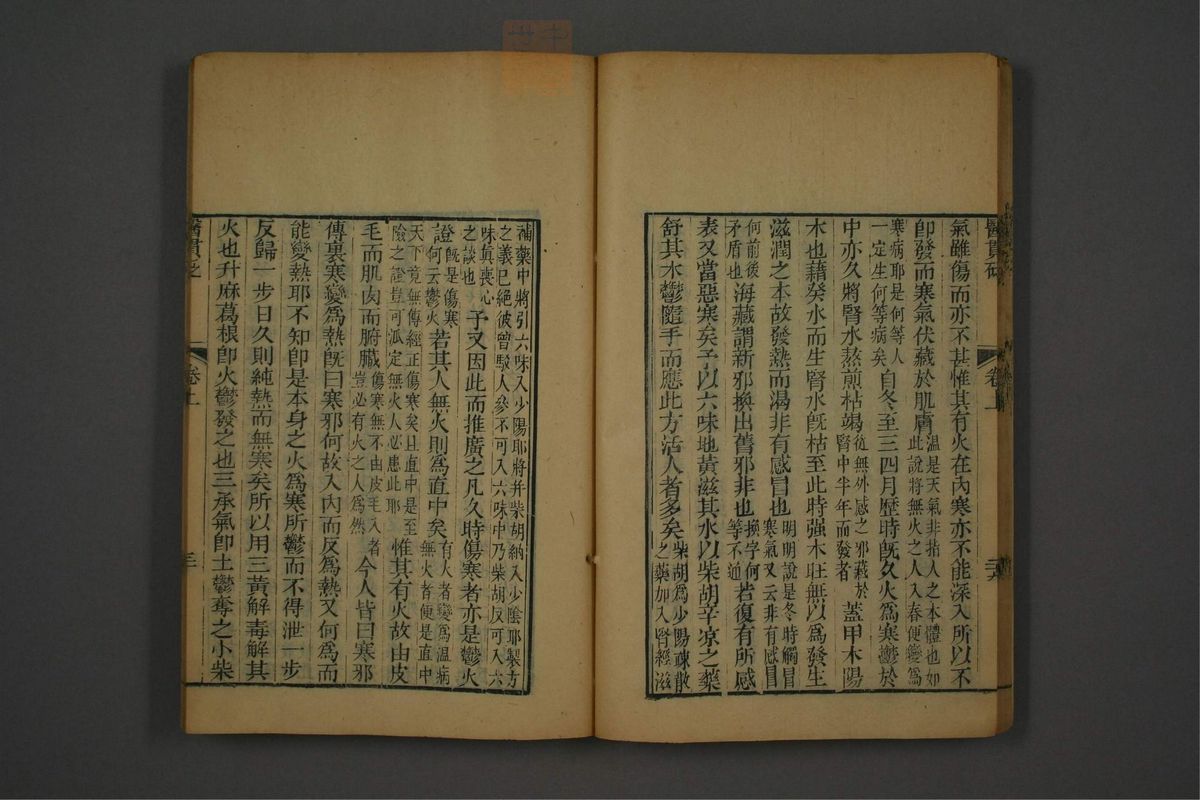 醫貫砭 卷上
氣雖傷而亦不甚惟其有火在內寒亦不能深入所以不
卽發而寒氣伏藏於肌膚溫是天氣非指人之本體也如此說將無火之人入春便變爲
寒病耶是何等人一定生何等病矣自冬至三四月歷時旣久火爲寒鬱於
中亦久將腎水熬煎枯竭從無外感之邪藏於腎中半年而發者蓋甲木陽
木也藉癸水而生腎水旣枯至此時强木旺無以爲發生
滋潤之本故發熱而渴非有感冒也明明說是冬時觸冒寒氣又云非有感冒
何前後矛盾也海藏謂新邪換出舊邪非也換字何等不通若復有所感
表又當惡寒矣予以六味地黃滋其水以柴胡辛凉之藥
舒其木鬱隨手而應此方活人者多矣柴胡爲少陽疎散之藥加入腎經滋
補藥中將引六味入少陽耶將并柴胡納入少陰耶製方之義已絕彼曾駁人參不可入六味中乃柴胡反可入六
味眞喪心之談也予又因此而推廣之凡久時傷寒者亦是鬱火
證旣是傷寒何云鬱火若其人無火則爲直中矣有火者變爲溫病無火者便是直中
天下竟無傳經正傷寒矣且直中是至險之證豈可派定無火人必患此耶惟其有火故由皮
毛而肌肉而腑臟傷寒無不由皮毛入者豈必有火之人爲然今人皆曰寒邪
傳裏寒變爲熱旣曰寒邪何故入內而反爲熱又何爲而
能變熱耶不知卽是本身之火爲寒所鬱而不得泄一步
反歸一步日久則純熱而無寒矣所以用三黃解毒解其
火也升麻葛根卽火鬱發之也三承氣卽土鬱奪之小柴
卷上